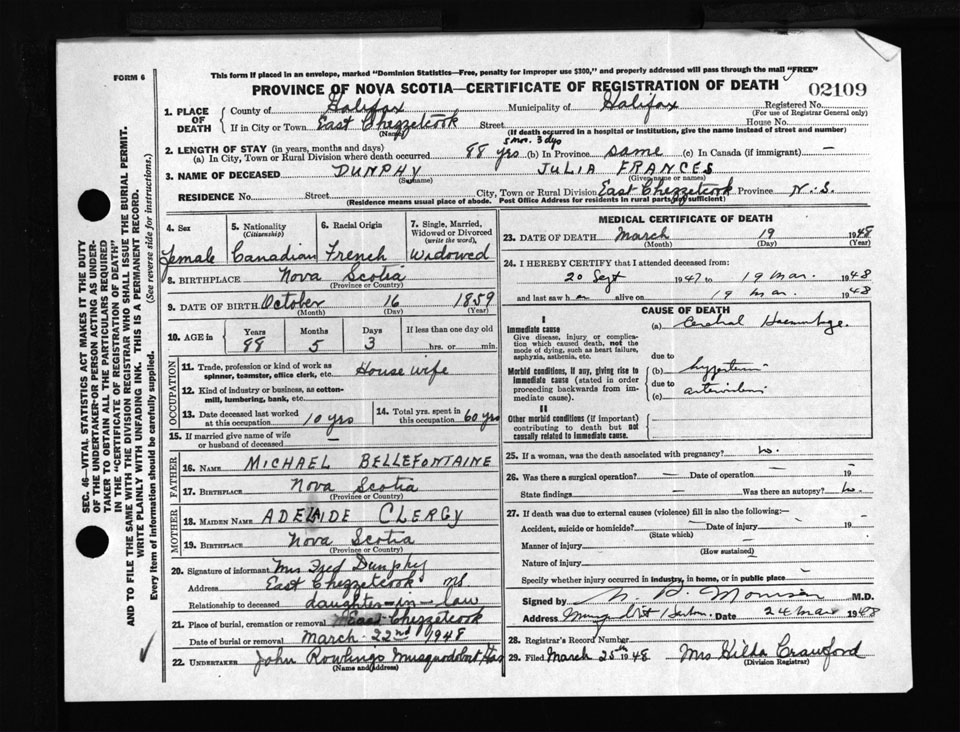 FORM 6
This form if placed in an envelope, marked "Dominion Statistics—Free, penalty for improper use $300," and properly addressed will pass through the mail "FREE"
PROVINCE OF NOVA SCOTIA—CERTIFICATE OF REGISTRATION OF DEATH
02109
1. PLACE OF DEATH
County of Halifax Municipality of Halifax Registered No.
(For use of Registrar General only)
If in City or Town East Chezzetcook Street House No.
(Name) (If death occurred in a hospital or institution, give the name instead of street and number)
2. LENGTH OF STAY (in years, months and days) 5 mos. 3 dys
(a) In City, Town or Rural Division where death occurred 88 yrs (b) In Province same (c) In Canada (if immigrant) —
3. NAME OF DECEASED DUNPHY JULIA FRANCES
(Surname) (Given name or names)
RESIDENCE No. Street City, Town or Rural Division East Chezzetcook Province N.S.
(Residence means usual place of abode. Post Office Address for residents in rural parts not sufficient)
4. Sex
5. Nationality (Citizenship)
6. Racial Origin
7. Single, Married, Widowed or Divorced (write the word)
female Canadian French Widowed
8. BIRTHPLACE Nova Scotia
(Province or Country)
9. DATE OF BIRTH October 16 1859
(Month) (Day) (Year)
10. AGE in Years Months Days If less than one day old
88 5 3 hrs. or min.
OCCUPATION
11. Trade, profession or kind of work as spinner, teamster, office clerk, etc. House wife
12. Kind of industry or business, as cotton-mill, lumbering, bank, etc.
13. Date deceased last worked at this occupation 10 yrs
14. Total yrs. spent in this occupation 60 yrs
15. If married give name of wife or husband of deceased —
FATHER
16. NAME MICHAEL BELLEFONTAINE
17. BIRTHPLACE Nova Scotia
(Province or Country)
MOTHER
18. MAIDEN NAME ADELAIDE CLERGY
19. BIRTHPLACE Nova Scotia
(Province or Country)
20. Signature of informant Mrs Fred Dunphy
Address East Chezzetcook NS
Relationship to deceased daughter-in-law
21. Place of burial, cremation or removal East Chezzetcook
Date of burial or removal March 22nd 1948
22. UNDERTAKER John Rowlings Musquodoboit Har
(Name and address)
MEDICAL CERTIFICATE OF DEATH
23. DATE OF DEATH March 19 1948
(Month) (Day) (Year)
24. I HEREBY CERTIFY that I attended deceased from:
20 Sept 1947 to 19 Mar. 1948
and last saw her alive on 19 Mar. 1948
CAUSE OF DEATH
I
Immediate cause
Give disease, injury or complication which caused death, not the mode of dying, such as heart failure, asphyxia, asthenia, etc.
(a) Cerebral Haemorrhage.
due to
Morbid conditions, if any, giving rise to immediate cause (stated in order proceeding backwards from immediate cause).
(b)
due to
(c)
II
Other morbid conditions (if important) contributing to death but not causally related to immediate cause.
25. If a woman, was the death associated with pregnancy? No.
26. Was there a surgical operation? — Date of operation — 19
State findings — Was there an autopsy? No.
27. If death was due to external causes (violence) fill in also the following:—
Accident, suicide or homicide? — Date of injury — 19
(State which)
Manner of injury —
(How sustained)
Nature of injury
Specify whether injury occurred in industry, in home, or in public place —
Signed by M.D.
Address Date 24 Mar 1948
28. Registrar's Record Number
29. Filed March 25th 1948 Mrs Hilda Crawford
(Division Registrar)
SEC. 46—VITAL STATISTICS ACT MAKES IT THE DUTY
OF THE UNDERTAKER OR PERSON ACTING AS UNDER-
TAKER TO OBTAIN ALL THE PARTICULARS REQUIRED
IN THE "CERTIFICATE OF REGISTRATION OF DEATH"
AND TO FILE THE SAME WITH THE DIVISION REGISTRAR WHO SHALL ISSUE THE BURIAL PERMIT.
WRITE PLAINLY WITH UNFADING INK. THIS IS A PERMANENT RECORD.
Every item of information should be carefully supplied. (See reverse side for instructions.)